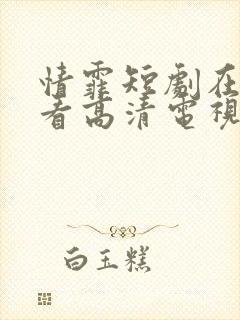 情霏短劇在
看高清電視
白玉糕